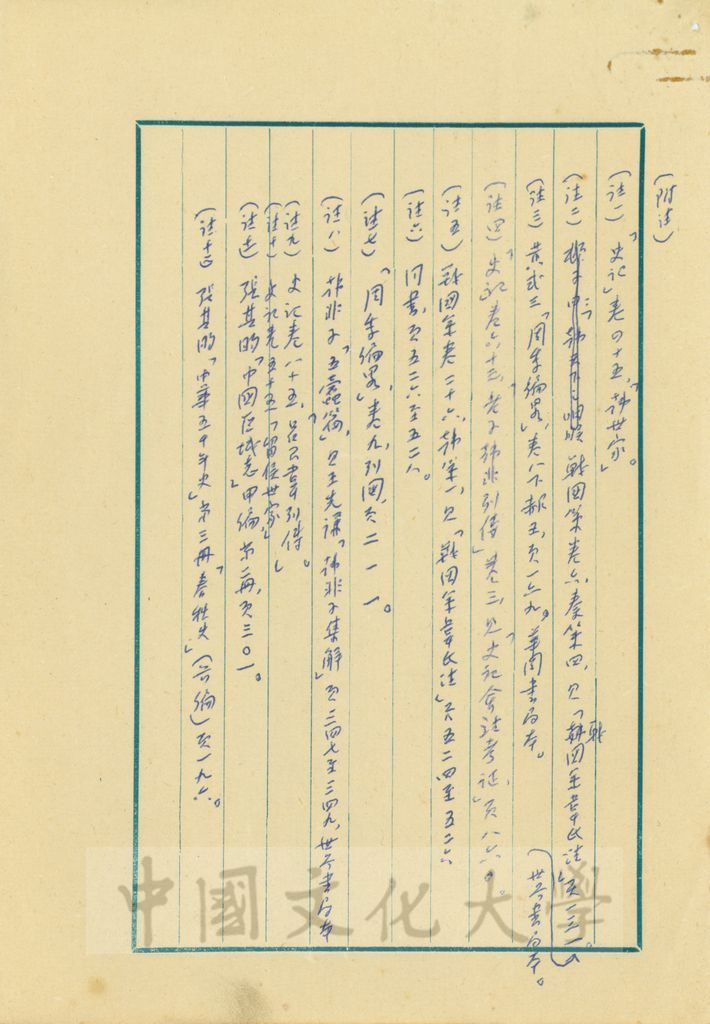 （附注）
（註一）「史記」卷四十五，「韓世家」。
（註二）戰國策卷六，秦策四，見「戰國策高氏注」頁一三一。（世界書局本）。
（註三）黃式三「周季編略」，卷八下赧王，頁一六九。華聞書局本。
（註四）「史記」卷六十三，「老子韓非列傳」第三，見「史記會注考證」，頁八六。
（註五）戰國策卷二十六，韓策一，見「戰國策高氏注」頁五二四至五二六
（註六）同書，頁五二六至五二八。
（註七）「周季編略」，卷九，列國，頁二一一。
（註八）韓非子「五蠹篇」，見王先謙「韓非子集解」頁三四七至三四九，世界書局本
（註九）史記卷八十五，呂不韋列傳。
（註十）史記卷五十五，「留侯世家」
（註十一）張其昀「中國區域志」甲編第二冊，頁三〇一。
（註十二）張其昀「中華五千年史」第三冊「春秋史」（前編）頁一九六。
中國文化大學